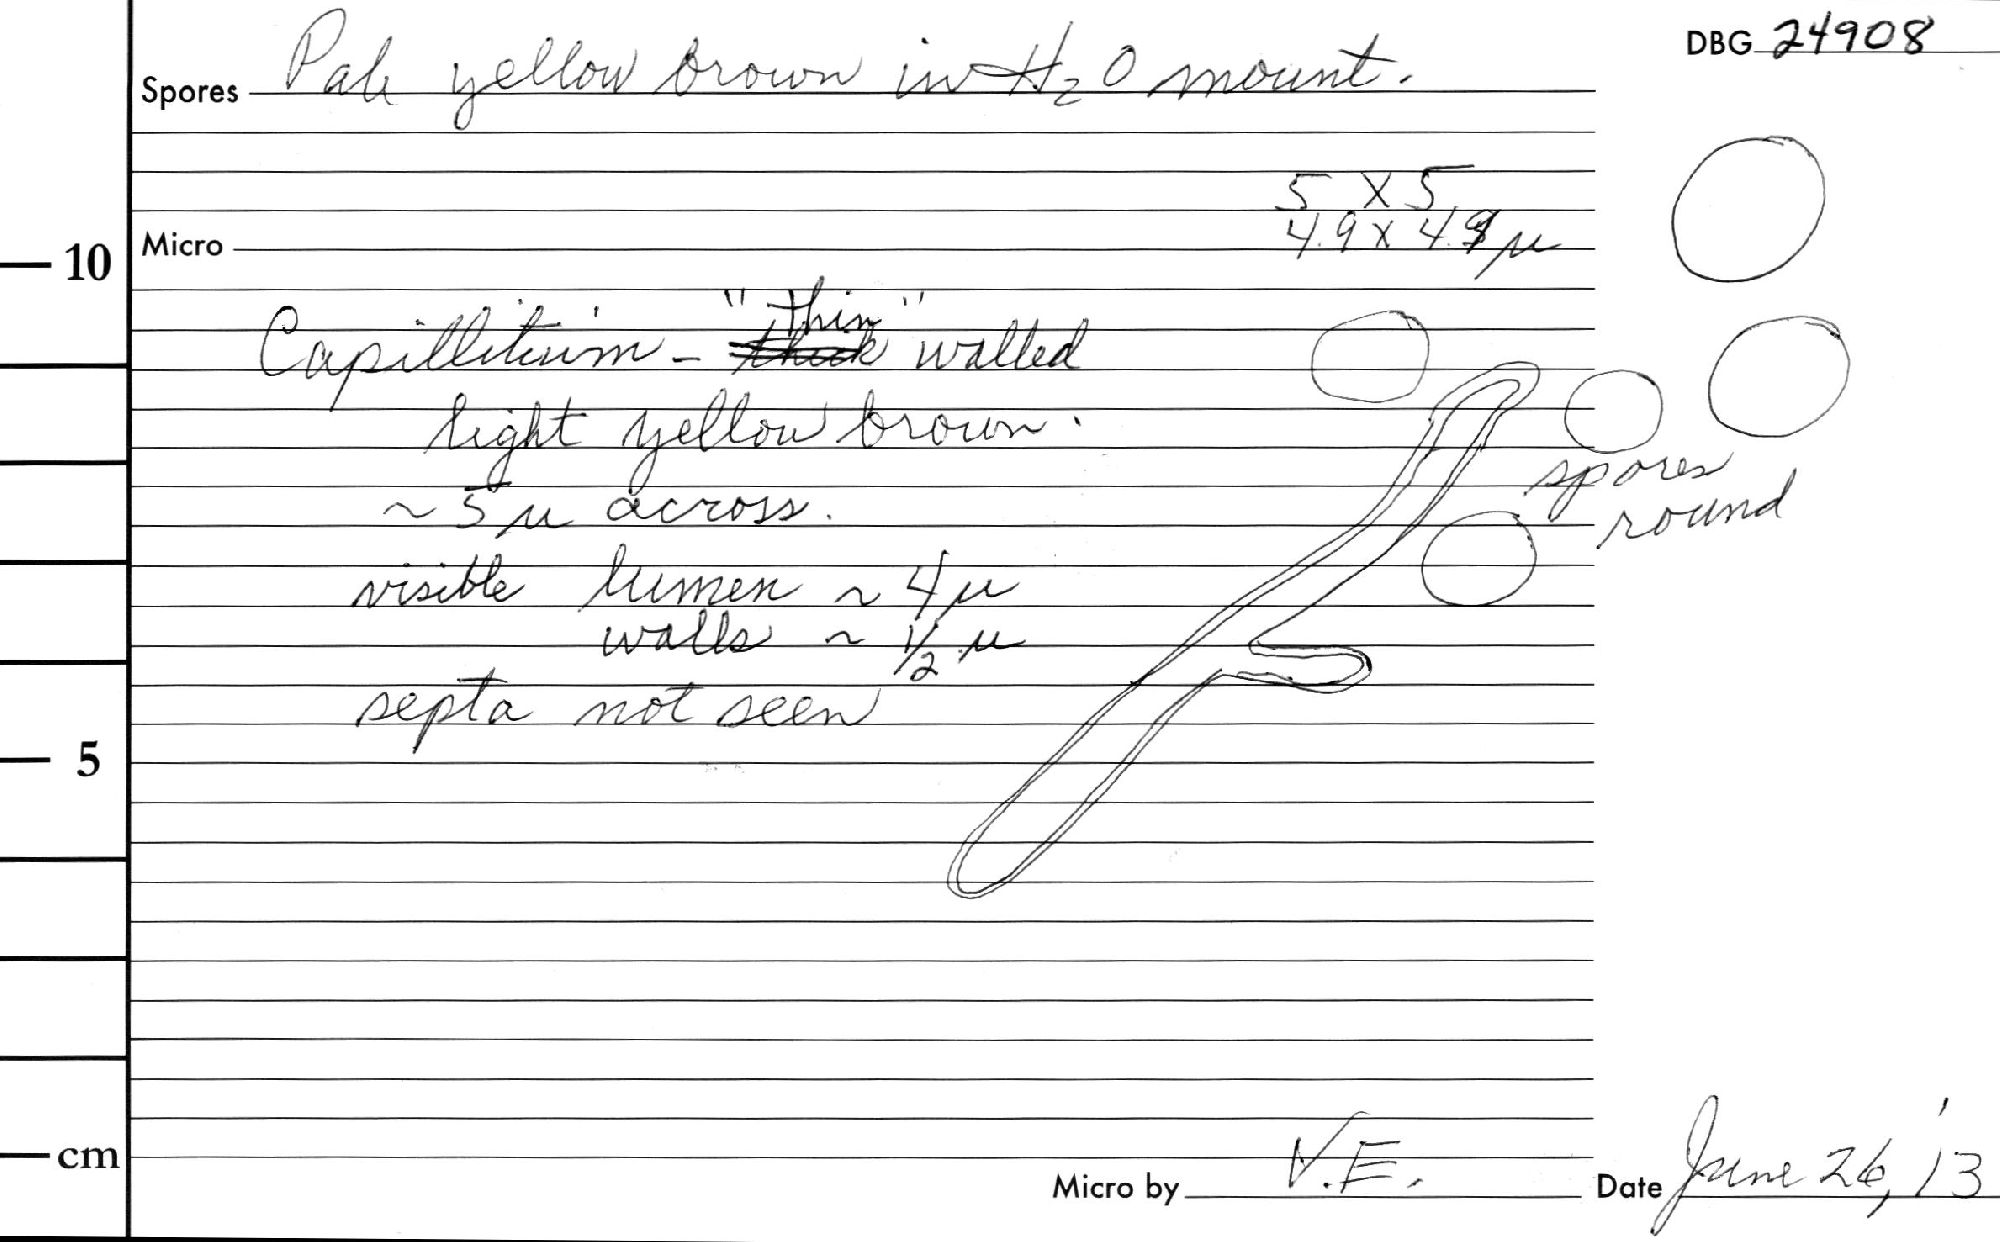 DBG 24908
Spores Pale yellow brown in H2O mount.
5 X 5
Micro 4.9 X 4.9 µ
10
"thin"
Capillitium - thick walled
light yellow brown.
~ 5 µ across.
spores
round
visible lumen ~ 4 µ
walls ~ 1/2 µ
septa not seen
5
cm
Micro by V.E. Date June 26, '13